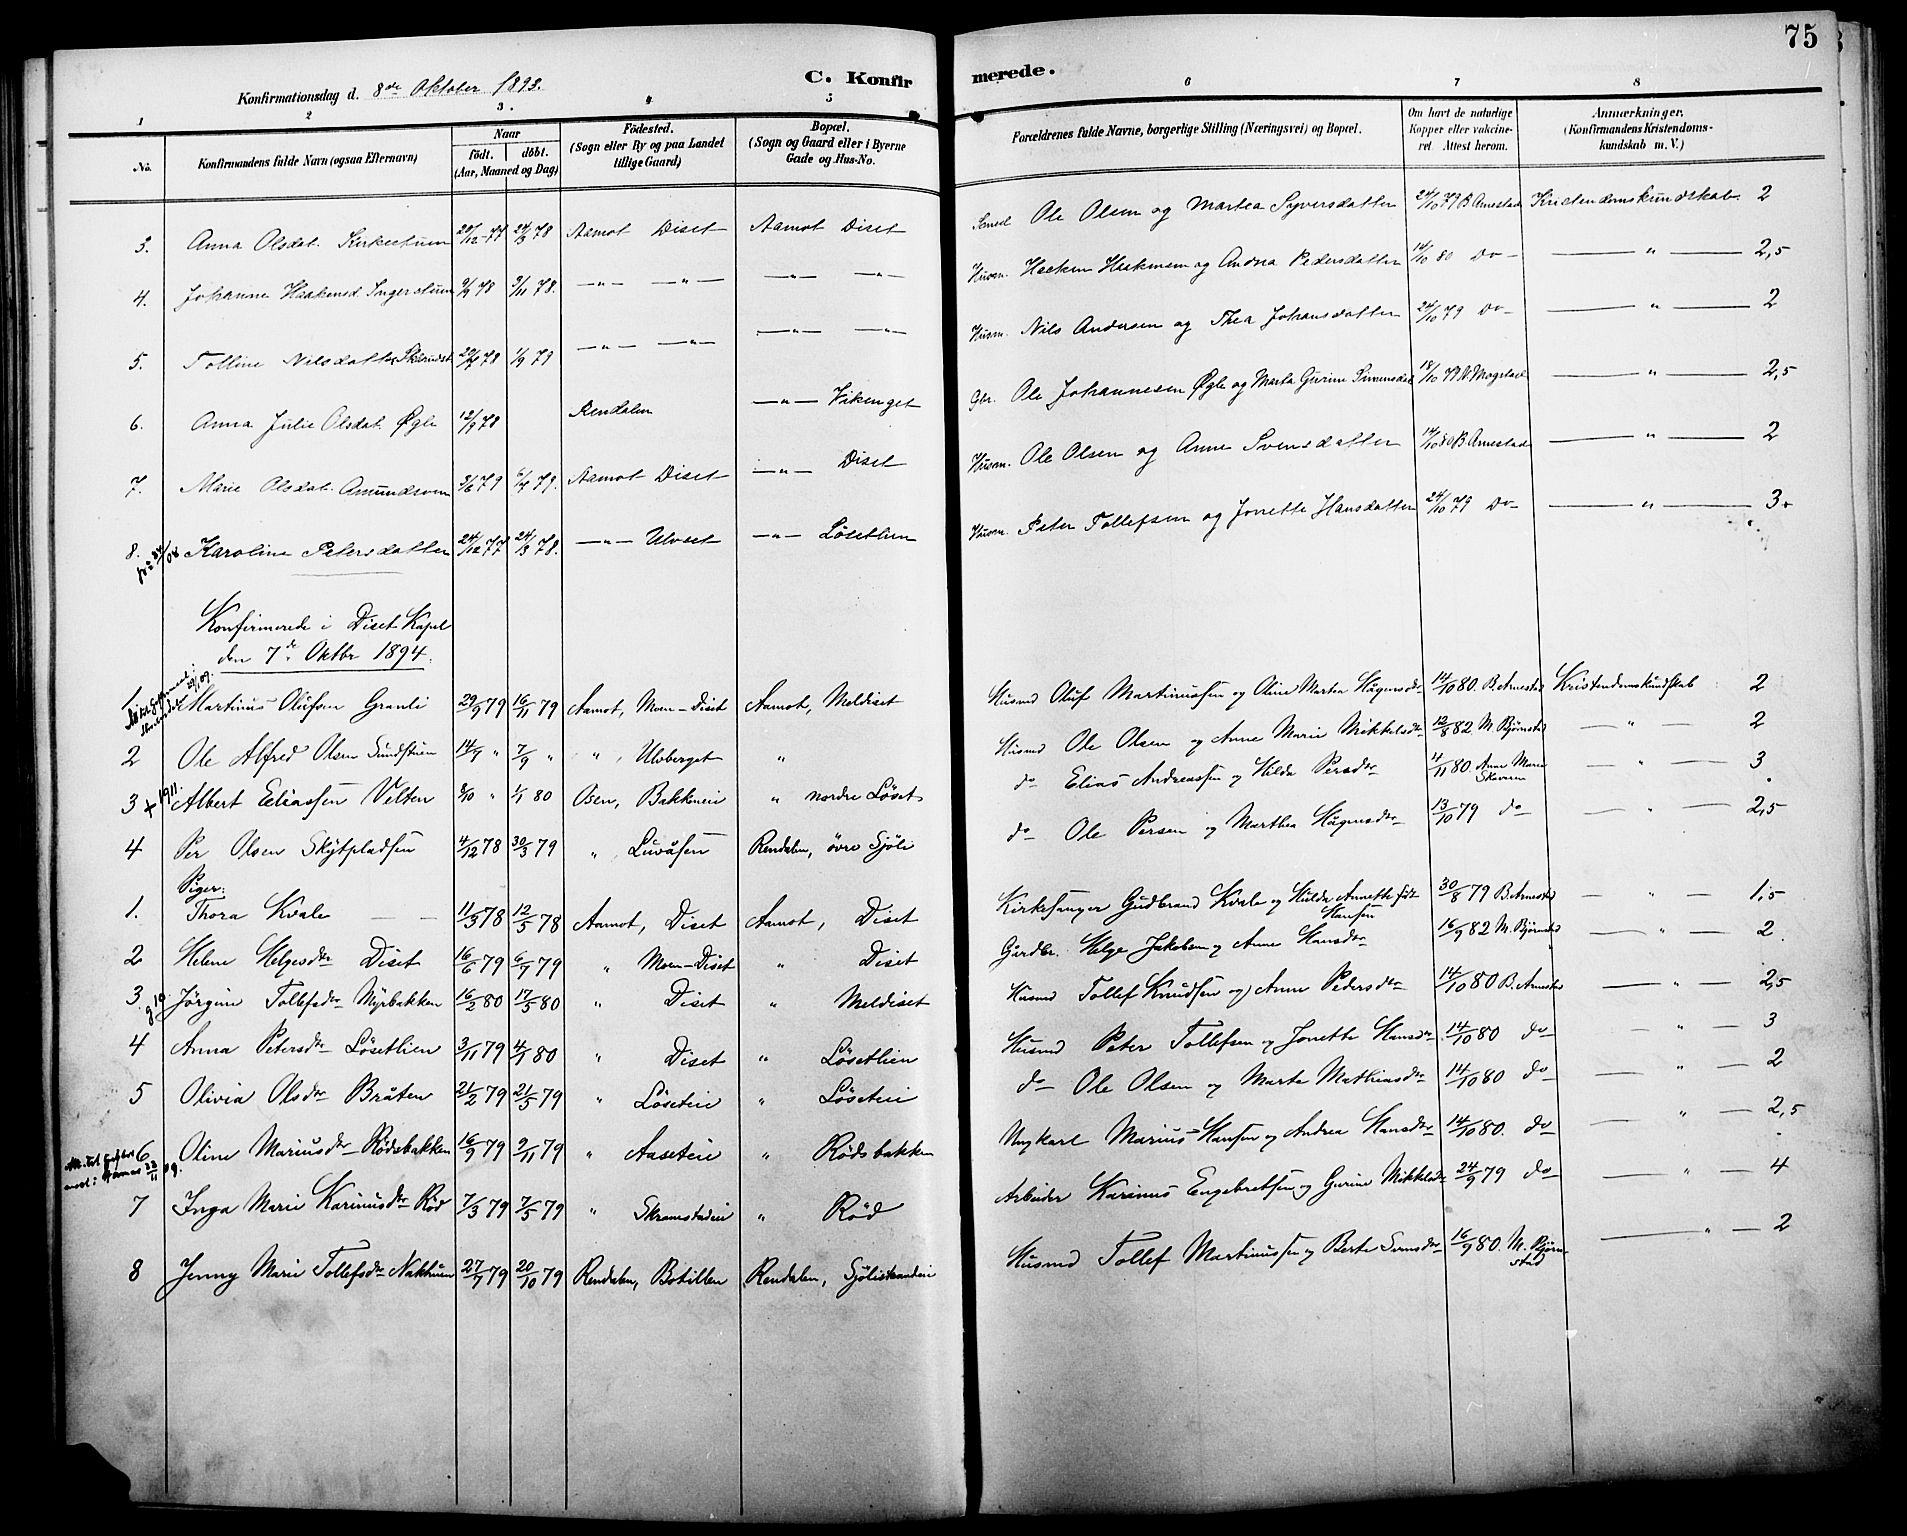 75
C. Konfirmerede.
Konfirmationsdag d. 8de Oktober 1893.
1 2 3. 4 5 6 7 8
No. Konfirmandens fulde Navn (ogsaa Efternavn) Naar født. døbt. (Aar, Maaned og Dag) Fødested. (Sogn eller By og paa Landet tillige Gaard) Bopæl. (Sogn og Gaard eller i Byerne Gade og Hus-No. Forældrenes fulde Navne, borgerlige Stilling (Næringsvei) og Bopæl. Om havt de naturlige Kopper eller vaccineret Attest herom. Anmærkninger. (Konfirmandens Kristendomskundskab m. V.)
3. Anna Olsdat. Kirkestuen 20/12-77 24/3 78 Aamot Diset Aamot Diset Ole Olsen og Martea Syversdatter 24/10 79 B Arnestad Kristendomskundskab 2
4. Johanne Haakensd. Ingerstuen 9/9 78 3/11 78. —„— —„— —„— —„— Husm. Haaken Haakensen og Andrea Pedersdatter 14/10 80 Do — „ — 2,5
5. Tolline Nilsdatter 1/9 79 —„— —„— —„— —„— Husm. Nils Andersen og Thea Johansdatter 24/10 79 Do — „ — 2
6. Anna Julie Olsdat. Øgle 12/9 78 Rendalen —„— Vikenget Gbr. Ole Johannesen Øgle og Marta Gurine Simensdat 18/10 79 N. Mogstad — „ — 2,5
7. Marie Olsdat. Amundsveen 3/6 79 6/7 79. Aamot Diset —„— Diset Husm. Ole Olsen og Anne Svensdatter 14/10 80 B Arnestad — „ — 2
8. Karoline Petersdatter 24/12 77 24/3 78. —„— Ulvset —„— Løsetlien Husm. Peter Tollefsen og Jonette Hansdatter 24/10 79 Do — „ — 3
Konfirmerede i Diset Kapel
den 7de Oktbr 1894.
1 Martinus Olufsen Granli 29/9 79 16/11 79 Aamot, Moen-Diset Aamot, Meldiset Husmd Oluf Martinussen og Oline Martea Hågensdtr 14/10 80. B. Arnestad Kristendomskundskab 2
2 Ole Alfred Olsen Sundstuen 14/7 „ 7/9 „ „ , Ulvberget „ Husmd Ole Olsen og Anne Marie Mikkelsdtr 12/8 82. M. Bjørnstad — „ — 2
3 + 1911. Albert Eliassen Velten 2/10 „ 1/1 80 Osen, Bakkeneie „ nordre Løset do Elias Andreassen og Hilda Persdtr 4/11 80. Anne Marie Skaveren — „ — 3
4 Per Olsen Skytpladsen 4/12 78 30/3 79 „ , Luvåsen Rendalen, øvre Sjøli do Ole Persen og Marthea Hågensdtr 13/10 79 do — „ — 2,5
Piger:
1. Thora Kvale 11/3 78 12/5 78 Aamot, Diset Aamot, Diset Kirkesanger Gudbrand Kvale og Hulda Annette født Hansen 30/8 79 B. Arnestad — „ — 1,5
2 Helene Helgesdtr Diset 16/6 79 6/7 79 „ Moen-Diset „ Diset Gårdbr. Helge Jakobsen og Anne Hansdtr 16/9 82 M. Bjørnstad — „ — 2
3 g 10 Jørgine Tollefsdtr Myrbakken 16/2 80 17/5 80 „ Diset „ Meldiset Husmd Tollef Knudsen og Anne Pedersdtr 14/10 80 B. Arnestad — „ — 2,5
4 Anna Petersdtr Løsetlien 3/11 79 4/1 80 „ Diset „ Løsetlien Husmd Peter Tollefsen og Jonette Hansdtr 14/10 80 do — „ — 3
5 Olivia Olsdtr Bråten 21/2 79 21/5 79 „ Løseteie „ Løseteie do Ole Olsen og Marte Mathiasdtr 14/10 80 do — „ — 2
6 Oline Mariusdtr Rødsbakken 16/9 79 9/11 79 „ Aaseteie „ Rødsbakken Ungkarl Marius Hansen og Andrea Hansdtr 14/10 80. do — „ — 2,5
7 Inga Marie Karinusdtr Rød 7/3 79 7/5 79 „ Skramstadeie „ Rød Arbeider Karinus Engebretsen og Gurine Mikkelsdtr 24/9 79 do — „ — 4
8 Jenny Marie Tollefsdtr 27/7 79 20/10 79 Rendalen, Botillen Rendalen, Sjølistrandeie Husmd Tollef Martinussen og Berte Svensdtr 16/9 80. M. Bjørnstad — „ — 2